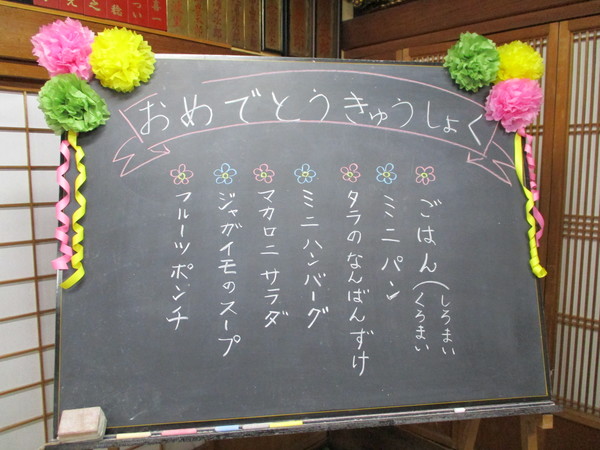 おめでとうきゅうしょく
ごはん（しろまい
くろまい
ミニパン
タラのなんばんずけ
ミニハンバーグ
マカロニサラダ
ジャガイモのスープ
フルーツポンチ